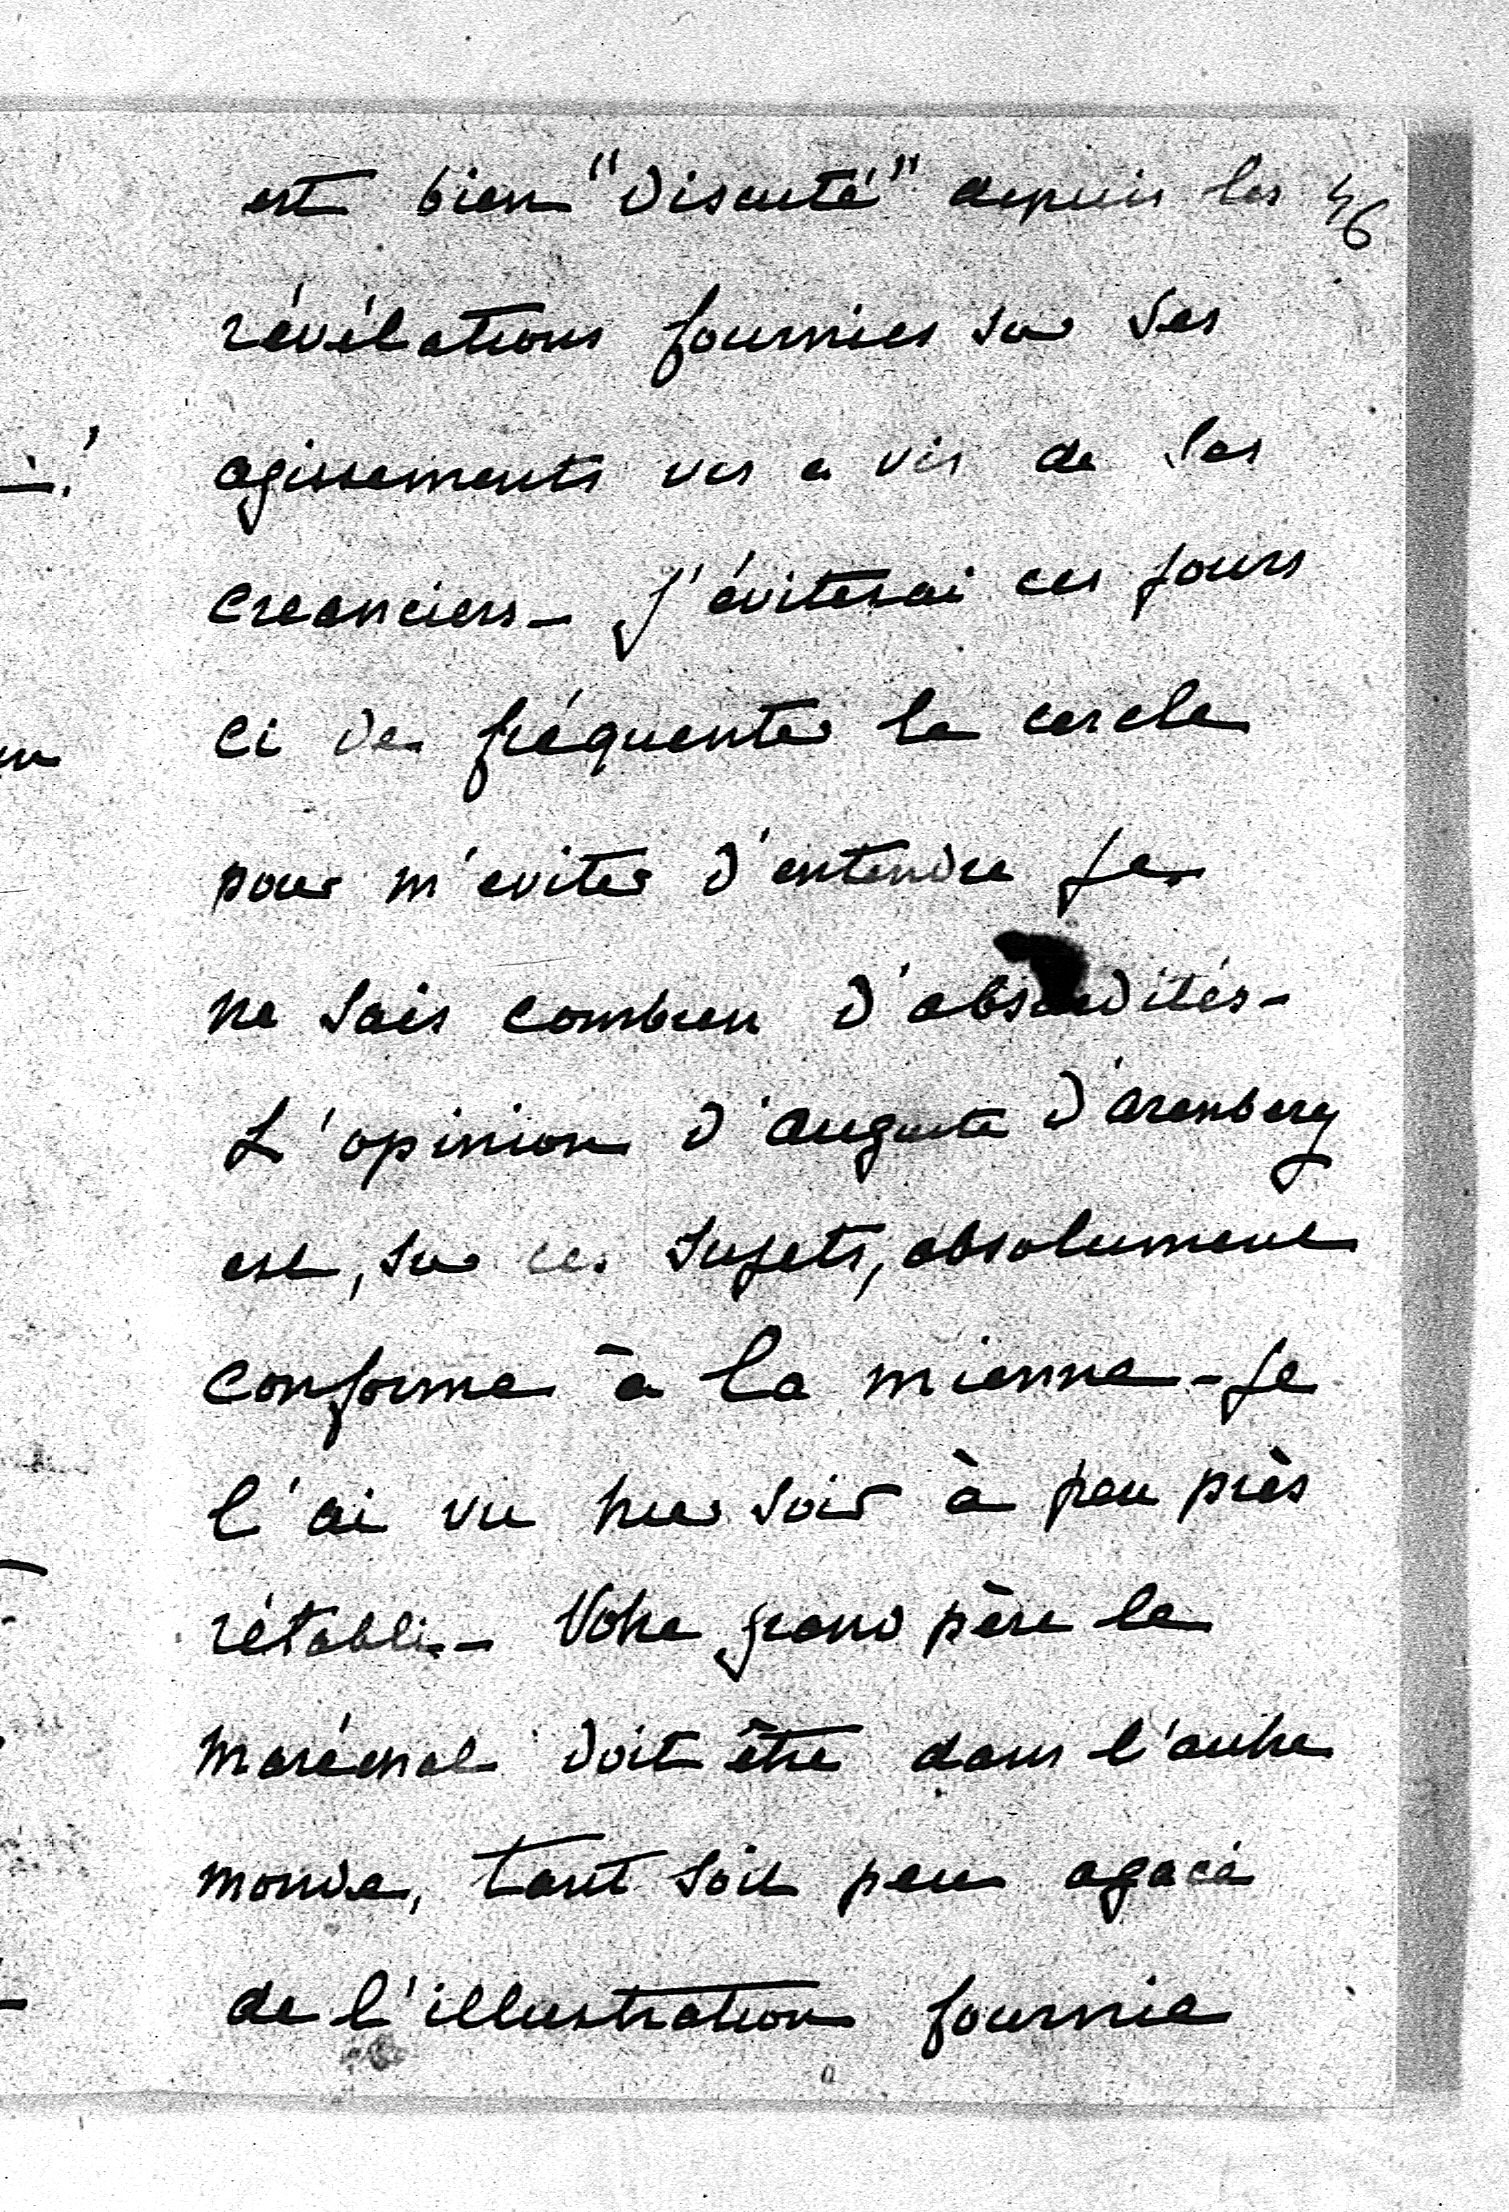 est bien "Discuté" depuis les 46
révélations fournies sur ses
agissements vis a vis de ses
creanciers - J'éviterai ces jours
ci de fréquenter le cercle
pour m'eviter d'entendre je
ne sais combien d'absurdités -
L'opinion d'Auguste d'Arenberg
est, sur ces sujets, absolument
conforme à la mienne - Je
l'ai vu hier soir à peu près
rétabli - Votre grand père le
maréchal doit être dans l'autre
monde, tant soit peu agacé
de l'illustration fournie